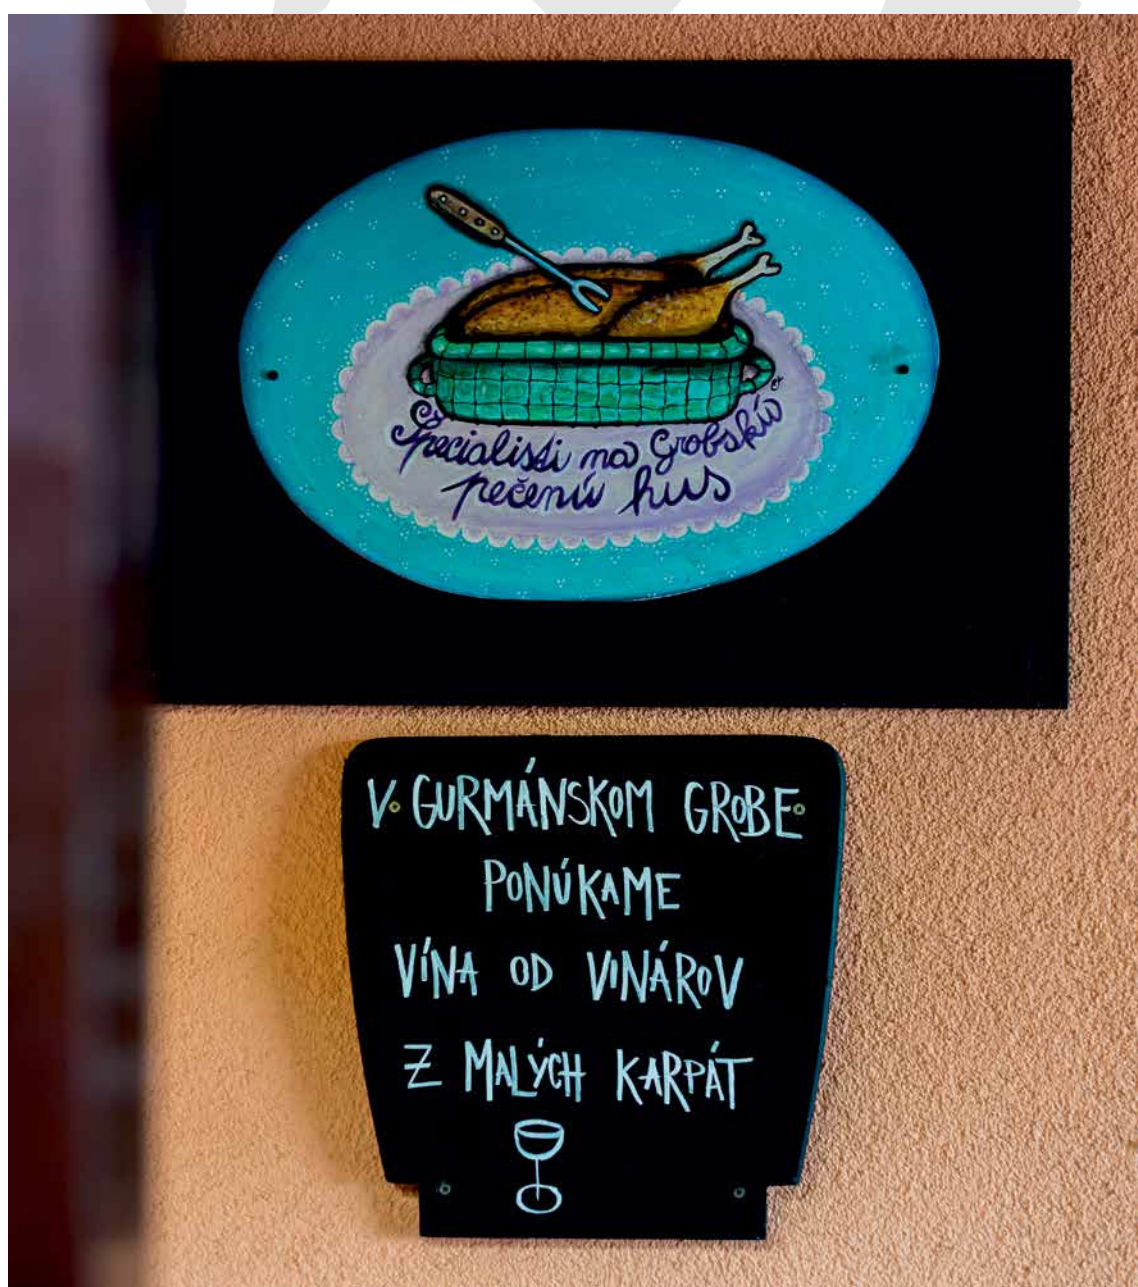 Špecialisti na Grobskú
pečenú hus
V GURMÁNSKOM GROBE
PONÚKAME
VÍNA OD VINÁROV
Z MALÝCH KARPÁT